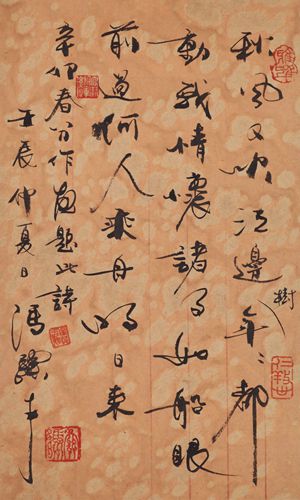 秋風又吹江邊樹年々都
動我情懷諸事如船眼
前過何人乘舟明日來
辛卯春分作画題此詩
壬辰仲夏日馮驥才